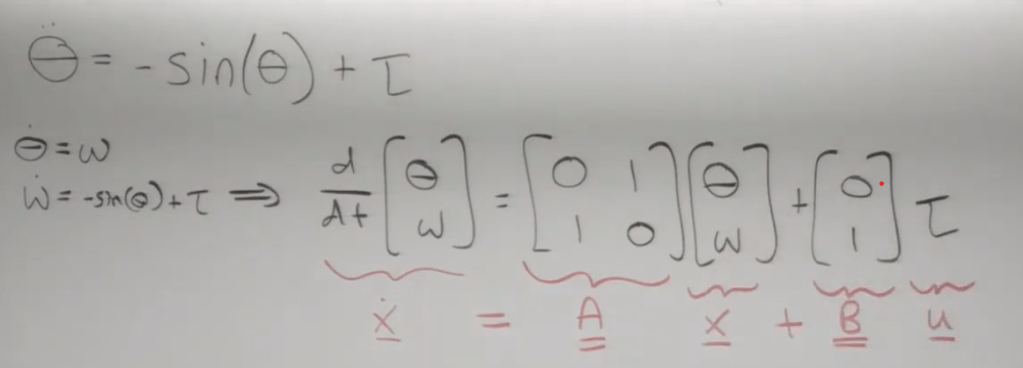 θ̈ = -sin(θ) + τ
θ̇ = ω
ω̇ = -sin(θ) + τ ⇒ d/dt [θ ω] = [0 1 1 0] [θ ω] + [0 1] τ
ẋ = A x + B u